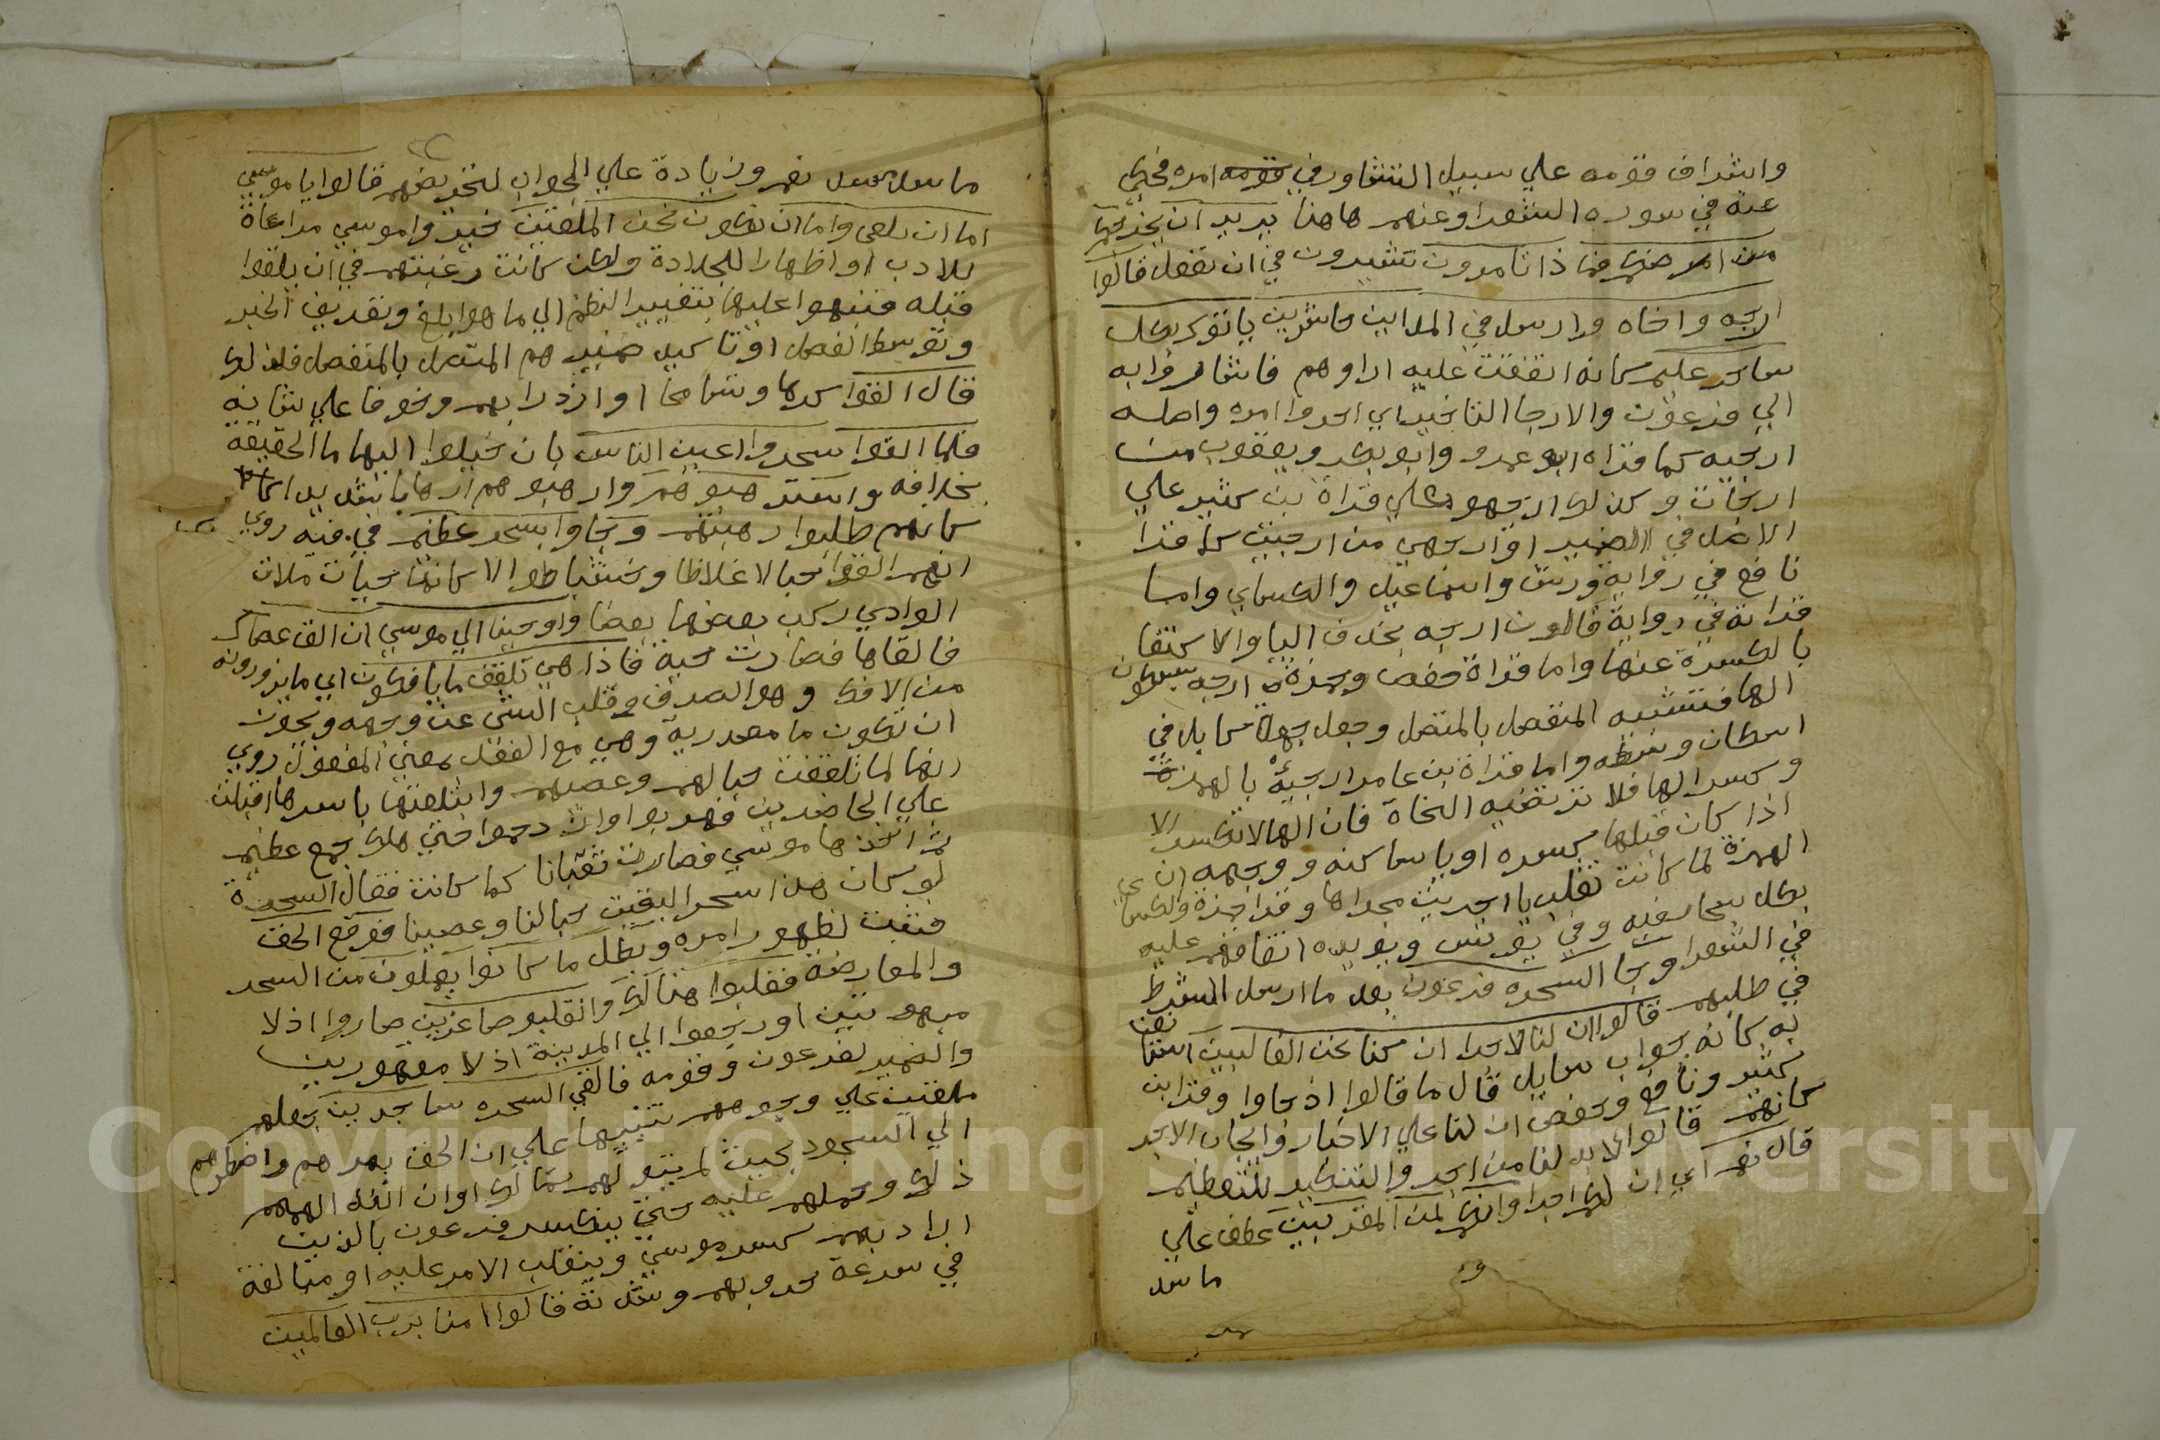 واشراف قومه علي سبيل التشاور في قومه امره فحكي
عنه في سوره الشعرا وعنهم هاهنا يريد ان يخرجكم
من ارضكم فماذا تامرون تشيرون في ان نفعل قالوا
ارجه واخاه وارسل في المداين حاشرين ياتوك بكل
ساحر عليم كانه اتفقت عليه اراوهم فاشاروا به
الي فرعون والارجا التاخير اي اخر امره واصله
ارجئه كما قراه ابو عمرو وابو بكر ويعقوب من
ارجات وكذلك ارجهو علي قراة بن كثير علي
الاصل في الضمير او ارجهي من ارجيت كما قرا
نافع في رواية ورش واسماعيل والكساي واما
قراته في رواية قالون ارجه بحذف اليا والاكتفا
بالكسرة عنها واما قراة حفص وحمزة ارجه بسكون
الها فلتشبيه المنفصل بالمتصل وجعل جه كابل في
اسكان وسطه واما قراة بن عامر ارجئه بالهمزة
وكسر الها فلا يرتضيه النحاة فان الها لا تكسر الا
اذا كان قبلها كسره او يا ساكنه ووجهه ان
الهمزة لما كانت تقلب يا اجريت مجراها وقرا حمزة والكساي
بكل سحار فيه وفي يونس ويويده اتفاقهم عليه
في الشعرا وجا السحرة فرعون بعد ما ارسل الشرط
في طلبهم قالوا ان لنا لاجرا ان كنا نحن الغالبين استانف
به كانه جواب سايل قال ما قالوا اذ جاوا وقرا ابن
كثير ونافع وحفص ان لنا علي الاخبار وايجاب الاجر
كانهم قالوا لا بد لنا من اجر والتنكير للتعظيم
قال نعم اي ان لكم اجرا وانكم لمن المقربين عطف علي
ما سد
ما سد مسد نعم وزيادة علي الجواب لتحريضهم قالوا يا موسي
اما ان تلقي واما ان نكون نحن الملقين خيروا موسي مراعاة
للادب او اظهارا للجلادة ولكن كانت رغبتهم في ان يلقوا
قبله فنبهوا عليها بتغيير النظم الي ما هو ابلغ وتعريف الخبر
وتوسط الفصل او تاكيد ضمير هم المتصل بالمنفصل فلذلك
قال القوا كرما وتسامحا او ازدرا بهم وثوقا علي شانه
فلما القوا سحروا اعين الناس بان خيلوا اليها ما الحقيقة
بخلافه واسترهبوهم وارهبوهم ارهابا شديدا
كانهم طلبوا رهبتهم وجاوا بسحر عظيم في فنه روي
انهم القوا حبالا غلاظا وخشبا طوالا كانها حيات ملات
الوادي ركب بعضها بعضا واوحينا الي موسي ان الق عصاك
فالقاها فصارت حية فاذا هي تلقف ما يافكون اي ما يزورونه
من الافك وهو الصرف وقلب الشي عن وجهه ويجوز
ان تكون ما مصدرية وهي مع الفعل بمعني المفعول روي
انها لما تلقفت حبالهم وعصيهم وابتلعتها باسرها اقبلت
علي الحاضرين فهربوا وازدحموا حتي هلك جمع عظيم
ثم اخذها موسي فصارت ثعبانا كما كانت فقال السحرة
لو كان هذا سحرا لبقيت حبالنا وعصينا فوقع الحق
فثبت لظهور امره وبطل ما كانوا يعملون من السحر
والمعارضة فغلبوا هنالك وانقلبوا صاغرين صاروا اذلا
مبهوتين او رجعوا الي المدينة اذلا مقهورين
والضمير لفرعون وقومه فالقي السحره ساجدين جعلهم
ملقين علي وجوههم تنبيها علي ان الحق بهرهم واضطرهم
الي السجود بحيث لم يبق لهم تمالك او ان الله الهمهم
ذلك وحملهم عليه حتي ينكسر فرعون بالذين
اراد بهم كسر موسي وينقلب الامر عليه او مبالغة
في سرعة خرورهم وشدته قالوا امنا برب العالمين